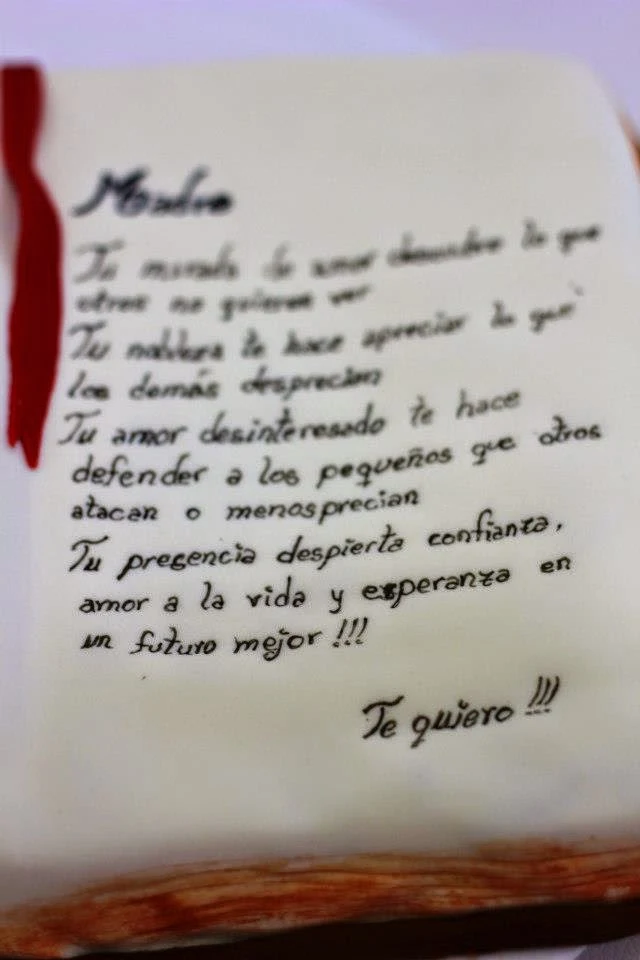 Madre
Tu mirada de amor descubre lo que
otros no quieren ver
Tu nobleza te hace apreciar lo que
los demás desprecian
Tu amor desinteresado te hace
defender a los pequeños que otros
atacan o menosprecian
Tu presencia despierta confianza,
amor a la vida y esperanza en
un futuro mejor !!!
Te quiero !!!